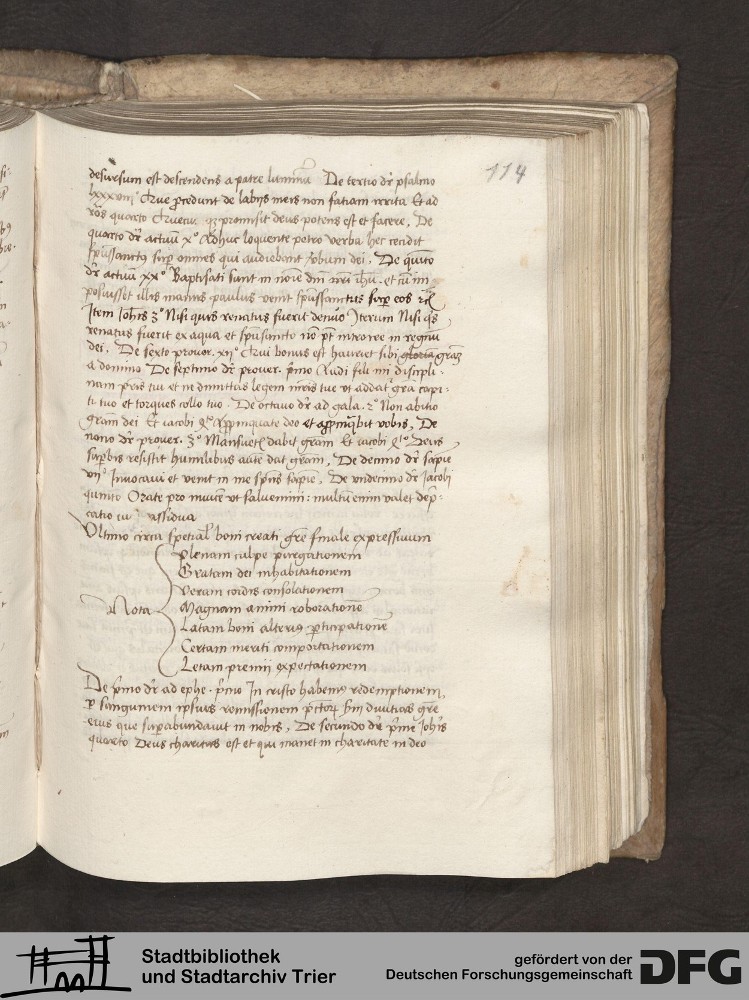 114
desursum est descendens a patre luminu De tertio dr psalmo
lxxxviij° Que procedunt de labijs meis non faciam irrita Et ad
ros quarto quecuqz promisit deus potens est et facere. De
quarto dr actuu x° Adhuc loquente petro verba hec cecidit
spussanctus sup omnes qui audiebant vbum dei. De quito
dr actuu xx° Baptisati sunt in noie dni nri ihu. et cu im
posuisset illis manus paulus venit spussanctus sup eos rc
Item Johis 3° Nisi quis renatus fuerit denuo Iterum Nisi qs
renatus fuerit ex aqua et spusancto no pt introire in regnu
dei. De sexto prouer. xij° Qui bonus est hauriet sibi gloria graz
a domino De septimo dr prouer. pmo Audi fili mi discipli-
nam pris tui et ne dimittas legem mris tue vt addat gra capi-
ti tuo et torques collo tuo. De octauo dr ad gala. 2° Non abicio
gram dei Et iacobi 4to Appinquate deo et appinqbit vobis. De
nono dr prouer. 3° Mansuetis dabit gram Et iacobi 4to Deus
supbis resistit humilibus aute dat gram. De decimo dr sapie
vij° Inuocaui et venit in me spus sapie. De vndecimo dr Jacobi
quinto Orate pro inuice vt saluemini: multu enim valet dep-
catio iu assidua
Vltimo circa spetial boni creati gre finale expressiuum
plenam culpe purgationem
Gratam dei inhabitationem
Veram cordis consolationem
Nota
Magnam animi roboratione
Latam boni alterius pticipatione
Certam meriti comportationem
Letam premij expectationem
De pimo dr ad ephe. pmo In cristo habemus redemptionem,
p sanguinem ipsius remissionem pctorz scdm diuitias gre
eius que supabundauit in nobis. De secundo dr pime Johis
quarto Deus charitas est et qui manet in charitate in deo
Stadtbibliothek
und Stadtarchiv Trier
gefördert von der
Deutschen Forschungsgemeinschaft
DFG